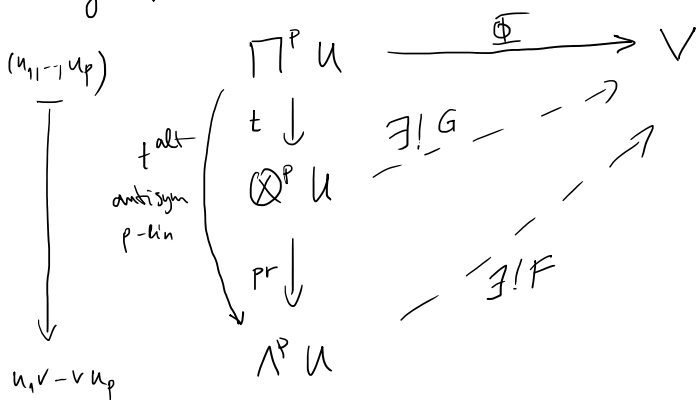 Φ
(u₁,--,u_p)
∏ᵖ U
V
t
∃! G
t^alt
antisym
p-lin
⊗ᵖ U
pr
∃! F
Λᵖ U
u₁ ∨ -- ∨ u_p